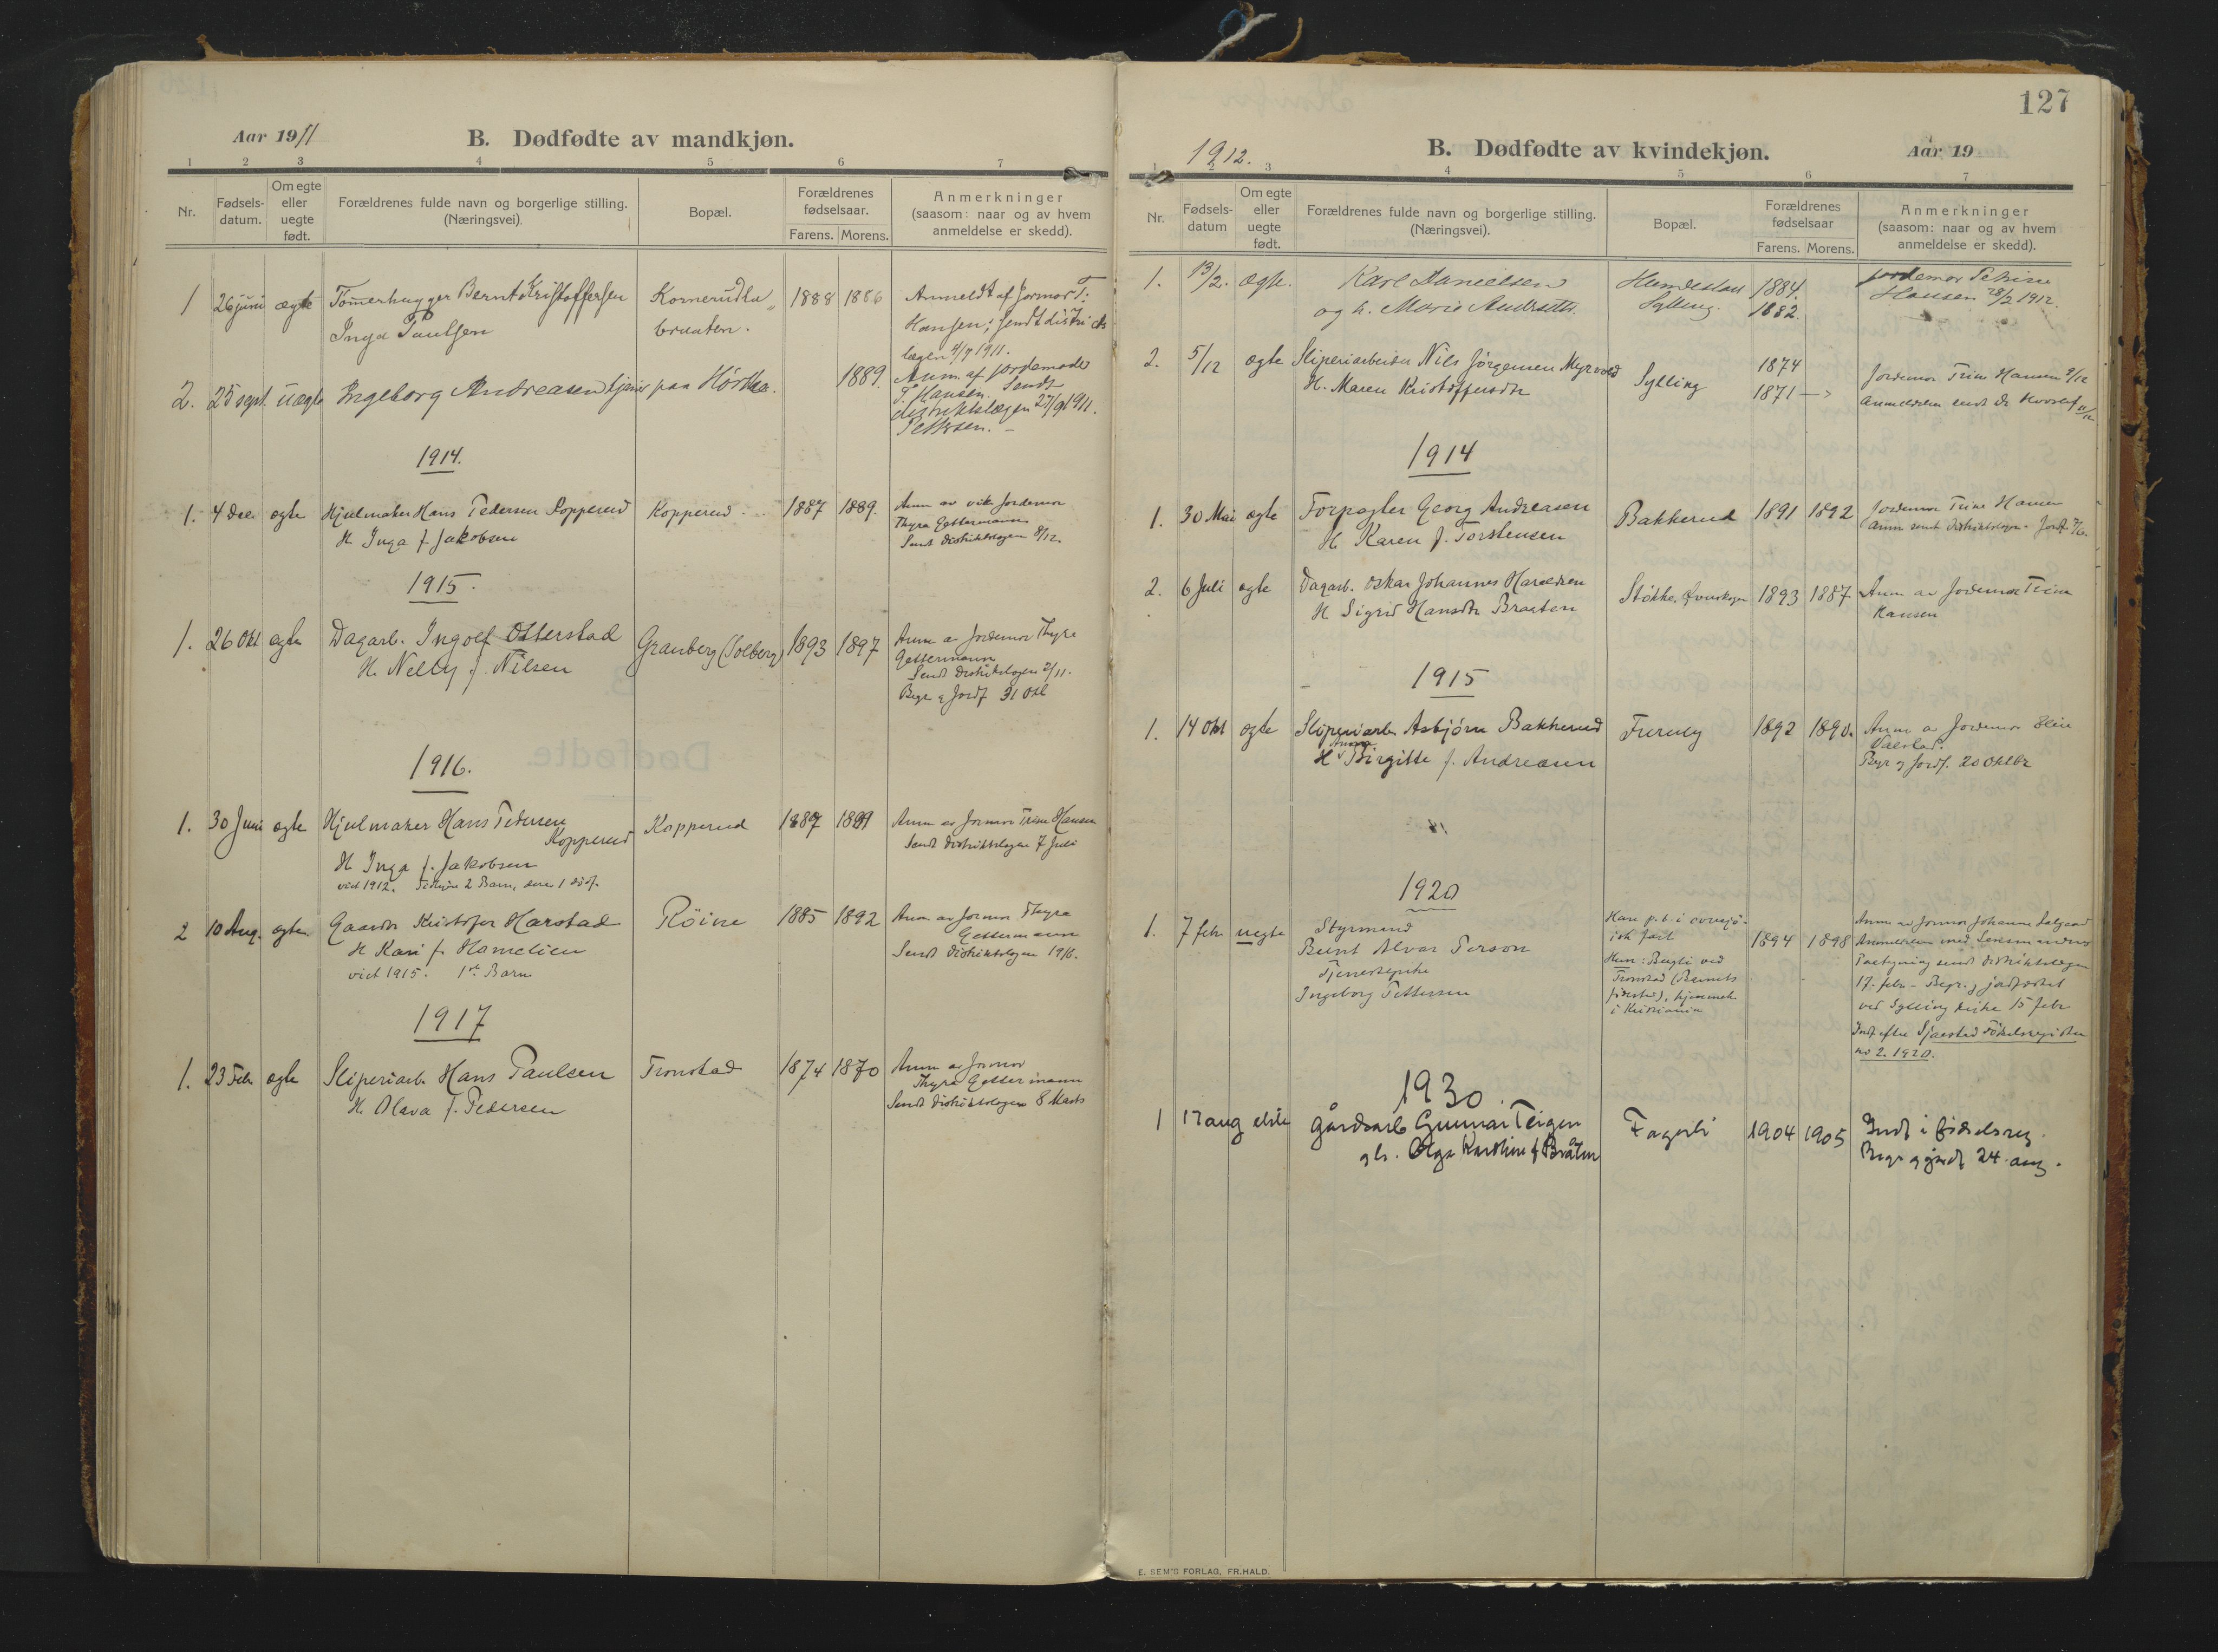 Aar 1911
B. Dødfødte av mandkjøn.
1 2 3 4 5 6 7
Nr.
Fødsels-
datum.
Om egte
eller
uegte
født.
Forældrenes fulde navn og borgerlige stilling.
(Næringsvei).
Bopæl.
Forældrenes
fødselsaar.
Farens. Morens.
Anmerkninger
(saasom: naar og av hvem
anmeldelse er skedd).
1 26 juni ægte Tømerhugger Bernt Kristoffersen
Inga Paulsen
Kornerudla
braaten.
1888 1886
Anmeldt af Jormor T:
Hansen; sendt districts
lægen 4/7 1911.
2. 25 sept. uægte Ingeborg Andreasen tjener paa Hørtha.
1889.
Anm. af jordemoder
T. Hansen. Sendt
distriktslægen 27/9 1911.
Pettersen. -
1914.
1. 4 Dec. egte Hjulmaker Hans Pedersen Kopperud
H. Inga f. Jakobsen
Kopperud
1887 1889.
Anm av vik Jordemor
Thyra Gettermann
Sendt Distriktslægen 8/12.
1915.
1. 26 Okt egte Dagarb. Ingolf Otterstad
H. Nelly f. Nilsen
Granberg (Solberg)
1893 1897
Anm av Jordemor Thyra
Gettermann
Sendt Distriktslægen 2/11.
Begr. & Jordf 31 Okt
1916.
1. 30 Juni egte Hjulmaker Hans Pedersen
Kopperud
H Inga f. Jakobsen
viet 1912. Tidligere 2 Barn, derav 1 dødf.
Kopperud
1887 1889
Anm av Jormor Trine Hansen
Sendt Distriktslægen 7 Juli
2 10 Aug. egte Gaardbr Kristofer Harstad
H Kari f. Hamelien
viet 1915. 1ste Barn
Röine
1885 1892
Anm av Jormor Thyra
Gettermann
Sendt Distriktslægen 19/8.
1917
1. 23 Feb. egte Sliperiarb. Hans Paulsen
H. Olava f. Pedersen
Tronstad
1874 1870
Anm av Jormor
Thyra Gettermann
Sendt Distriktslægen 8 Marts
127
1912.
B. Dødfødte av kvindekjøn.
Aar 19
1 2 3 4 5 6 7
Nr.
Fødsels-
datum
Om egte
eller
uegte
født.
Forældrenes fulde navn og borgerlige stilling.
(Næringsvei).
Bopæl.
Forældrenes
fødselsaar
Farens. Morens.
Anmerkninger
(saasom: naar og av hvem
anmeldelse er skedd).
1. 13/2. ægte. Karl Danielsen
og h. Marie Andersdtr.
Sylling.
1884.
1882.
Jordemor Petrine
Hansen 28/2 1912.
2. 5/12 ægte Sliperiarbeider Nils Jörgensen Myrvold
H. Maren Kristoffersdtr
Sylling
1874
1871
Jordemor Trine Hansen 9/12
Anmeldelsen sendt Dr
1914
1. 30 Mai egte Forpagter Georg Andreasen
H Karen f. Torstensen
Bakkerud
1891 1892
Jordemor Trine Hansen
Anm sendt Distriktslægen.
2. 6 Juli egte Dagarb. Oskar Johannes Haraldsen
H Sigrid Hansdtr Braaten
Stokke
1893 1887
Anm av Jordemor Trine
Hansen
1915
1. 14 Okt egte Sliperiarb. Asbjörn Bakkerud
Anna
H Birgitte f. Andreasen
Furuly
1892 1890.
Anm av Jordemor
Begr & Jordf. 20 Oktbr
1920
1. 7 febr uegte Styrmand
Bernt Alvar Person
Tjenestepike
Ingeborg Pettersen
Han p.t. i oversjö-
isk fart
Hun: Bugti ved
Tronstad (Barnets
födested), hjemmeh.
i Kristiania
1894 1898
Anm av Jormor Johanne
17. febr - Begr. & jordfæstet
ved Sylling kirke 15 febr
Indf efter Sjaastad Födselsregister
no 2. 1920.
1930.
1 17 aug ekte gårdsarb Gunnar Teigen
og h. Olga Karoline f Bråten
Fagerli
1904 1905
Indf i födselsreg.
Begr og jordf 24. aug.
E. SEM'S FORLAG, FR.HALD.